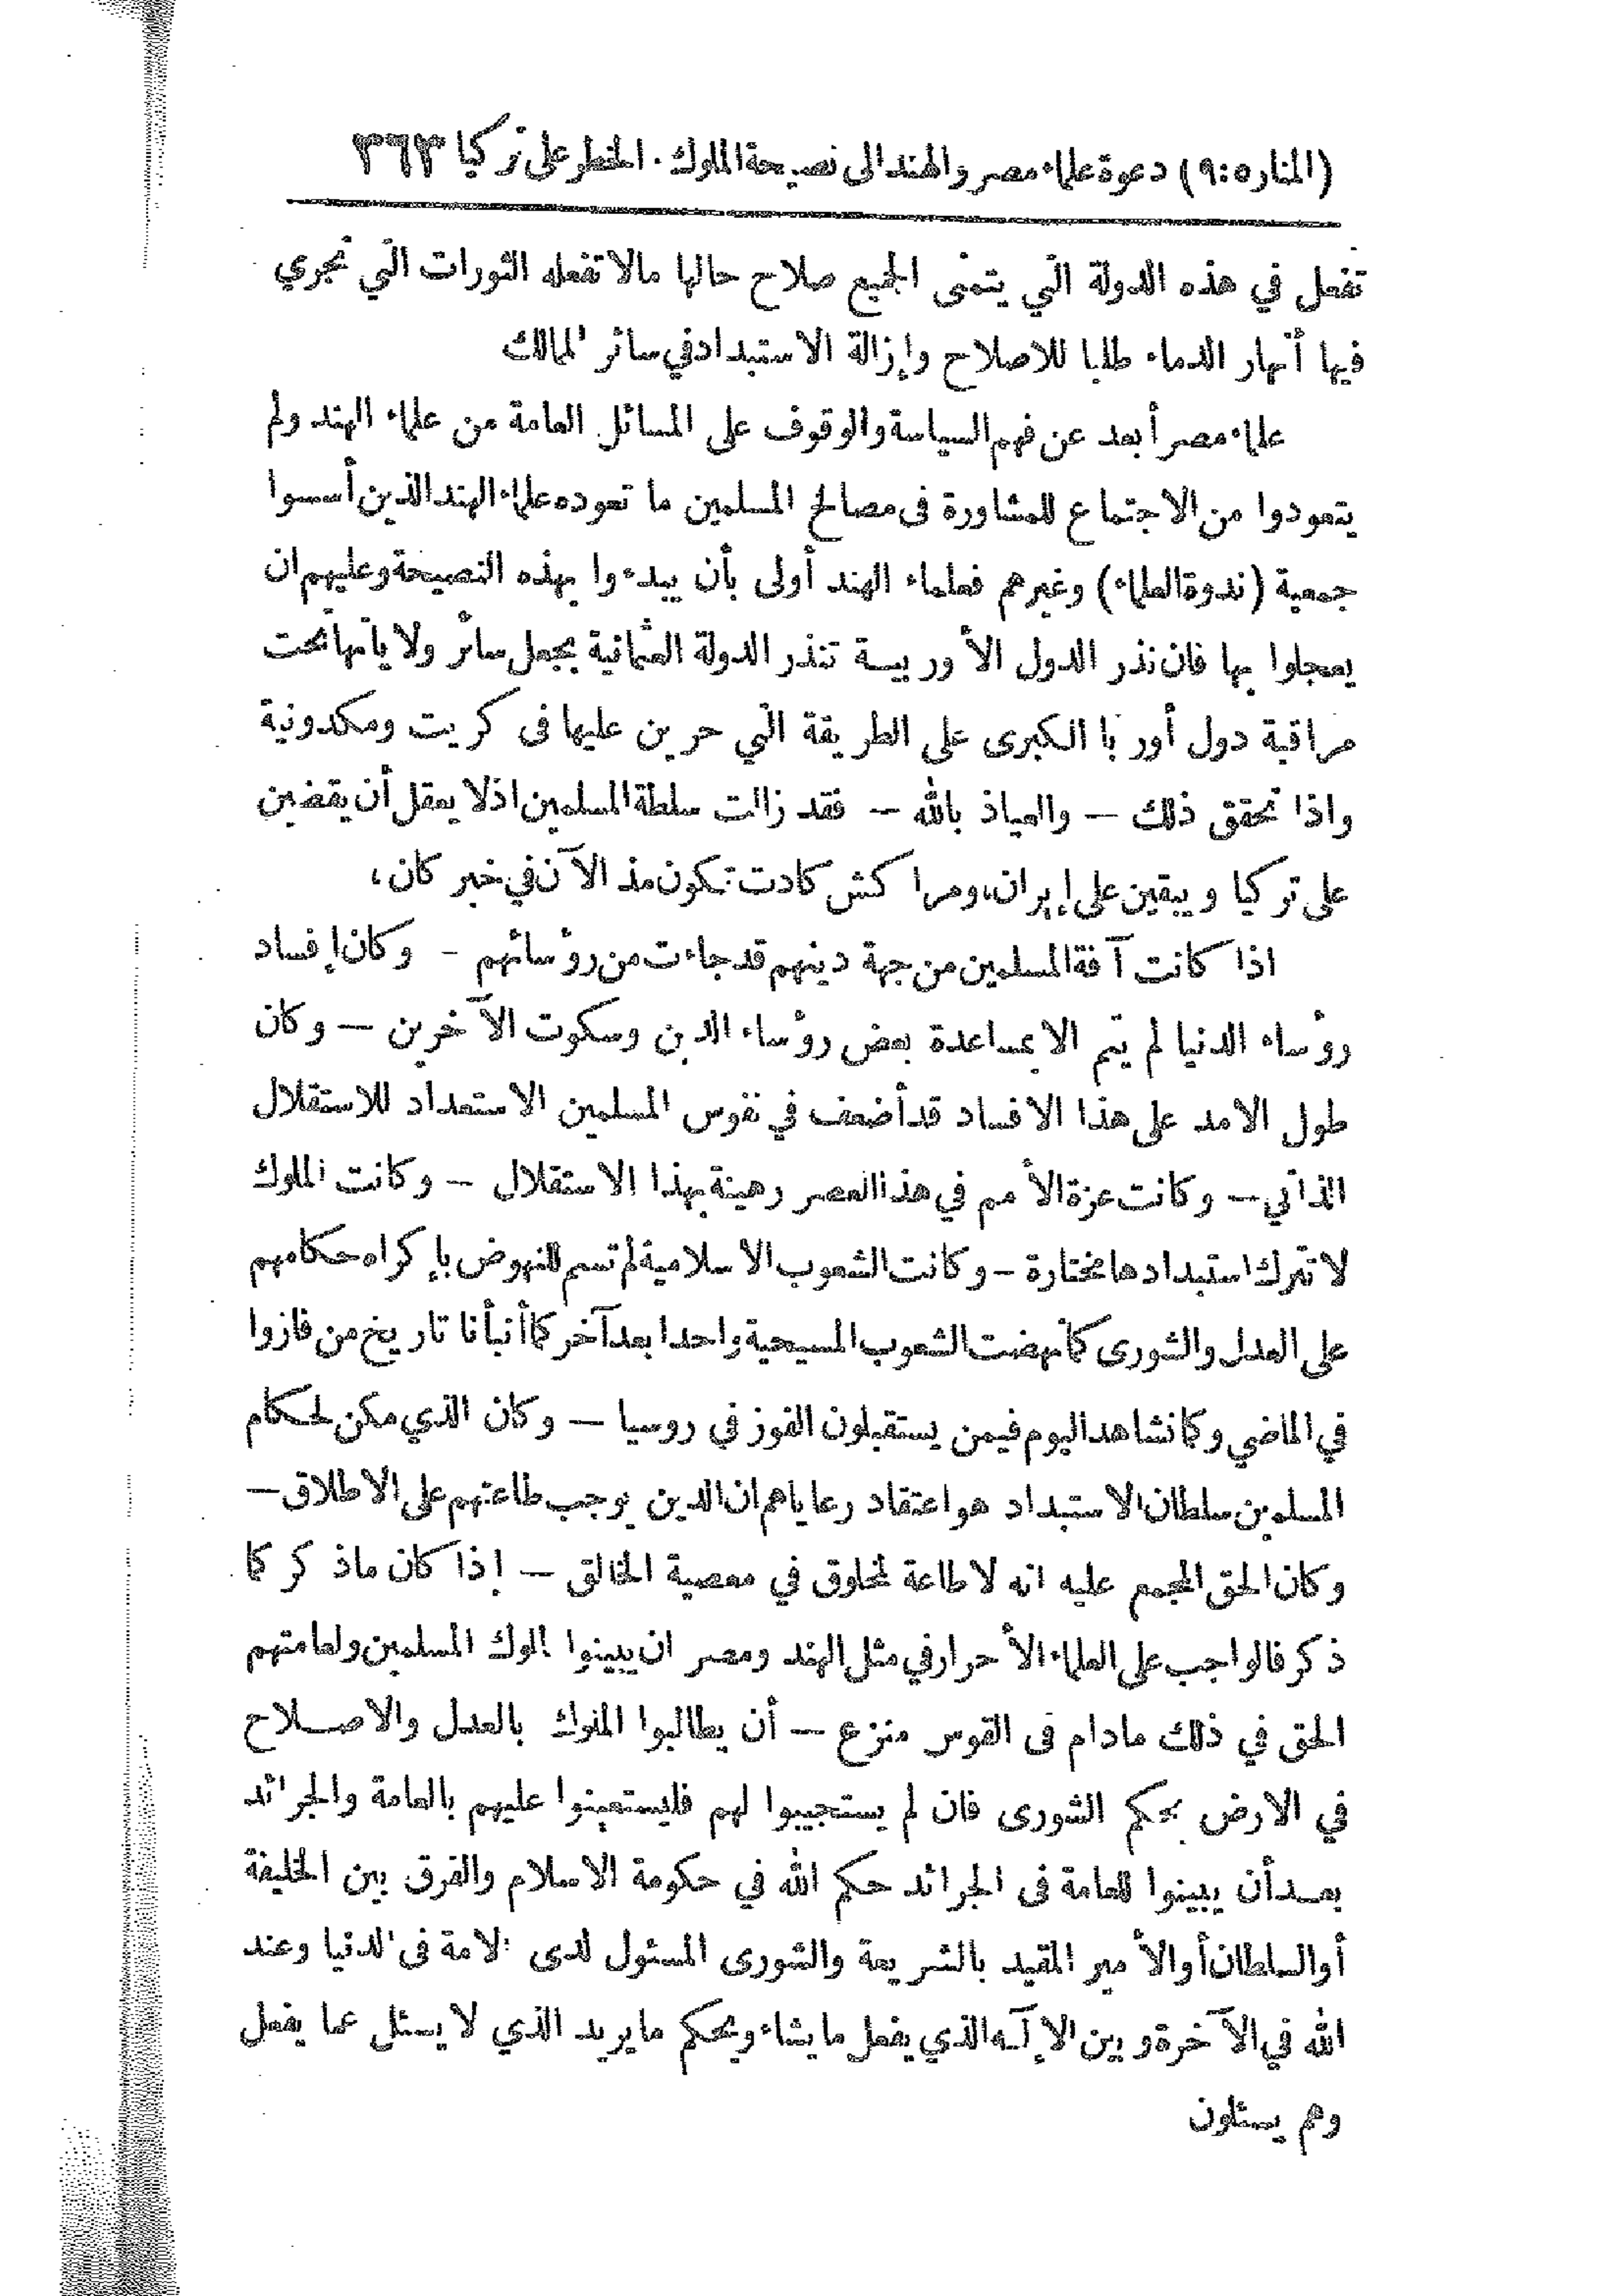 (المنار ٥ : ٩) دعوة علماء مصر والهند الى نصيحة الملوك . الخطر على تركيا ٣٦٣
تفعل في هذه الدولة التي يتمنى الجميع صلاح حالها مالا تفعله الثورات التي تجري
فيها أنهار الدماء طلبا للاصلاح وإزالة الاستبداد في سائر الممالك
علماء مصر أبعد عن فهم السياسة والوقوف على المسائل العامة من علماء الهند ولم
يتعودوا من الاجتماع للمشاورة فى مصالح المسلمين ما تعوده علماء الهند الذين أسسوا
جمعية (ندوة العلماء) وغيرهم فعلماء الهند أولى بأن يبدءوا بهذه النصيحة وعليهم ان
يعجلوا بها فان نذر الدول الأوربية تنذر الدولة العثمانية بجعل سائر ولاياتها تحت
مراقبة دول أوربا الكبرى على الطريقة التي جرين عليها فى كريت ومكدونية
واذا تحقق ذلك — والعياذ بالله — فقد زالت سلطة المسلمين اذ لا يعقل أن يقضين
على تركيا ويبقين على إيران، ومراكش كادت تكون مذ الآن في خبر كان،
اذا كانت آفة المسلمين من جهة دينهم قد جاءت من رؤسائهم - وكان إفساد
رؤساء الدنيا لم يتم الا بمساعدة بعض رؤساء الدين وسكوت الآخرين — وكان
طول الامد على هذا الافساد قد أضعف في نفوس المسلمين الاستعداد للاستقلال
الذاتي — وكانت عزة الأمم في هذا العصر رهينة بهذا الاستقلال — وكانت الملوك
لا تترك استبدادها مختارة — وكانت الشعوب الاسلامية لم تسم للنهوض بإكراه حكامهم
على العدل والشورى كما نهضت الشعوب المسيحية واحدا بعد آخر كما أنبأنا تاريخ من فازوا
في الماضي وكما نشاهد اليوم فيمن يستقبلون الفوز في روسيا — وكان الذي مكن لحكام
المسلمين سلطان الاستبداد هو اعتقاد رعاياهم ان الدين يوجب طاعتهم على الاطلاق —
وكان الحق المجمع عليه انه لا طاعة لمخلوق في معصية الخالق — إذا كان ماذكر كما
ذكر فالواجب على العلماء الأحرار في مثل الهند ومصر ان يبينوا لملوك المسلمين ولعامتهم
الحق في ذلك مادام فى القوس منزع — أن يطالبوا الملوك بالعدل والاصلاح
في الارض بحكم الشورى فان لم يستجيبوا لهم فليستعينوا عليهم بالعامة والجرائد
بعد أن يبينوا للعامة فى الجرائد حكم الله في حكومة الاسلام والفرق بين الخليفة
أو السلطان أو الأمير المقيد بالشريعة والشورى المسئول لدى الامة فى الدنيا وعند
الله في الآخرة وبين الإلـٓه الذي يفعل ما يشاء ويحكم ما يريد الذي لا يسئل عما يفعل
وهم يسئلون